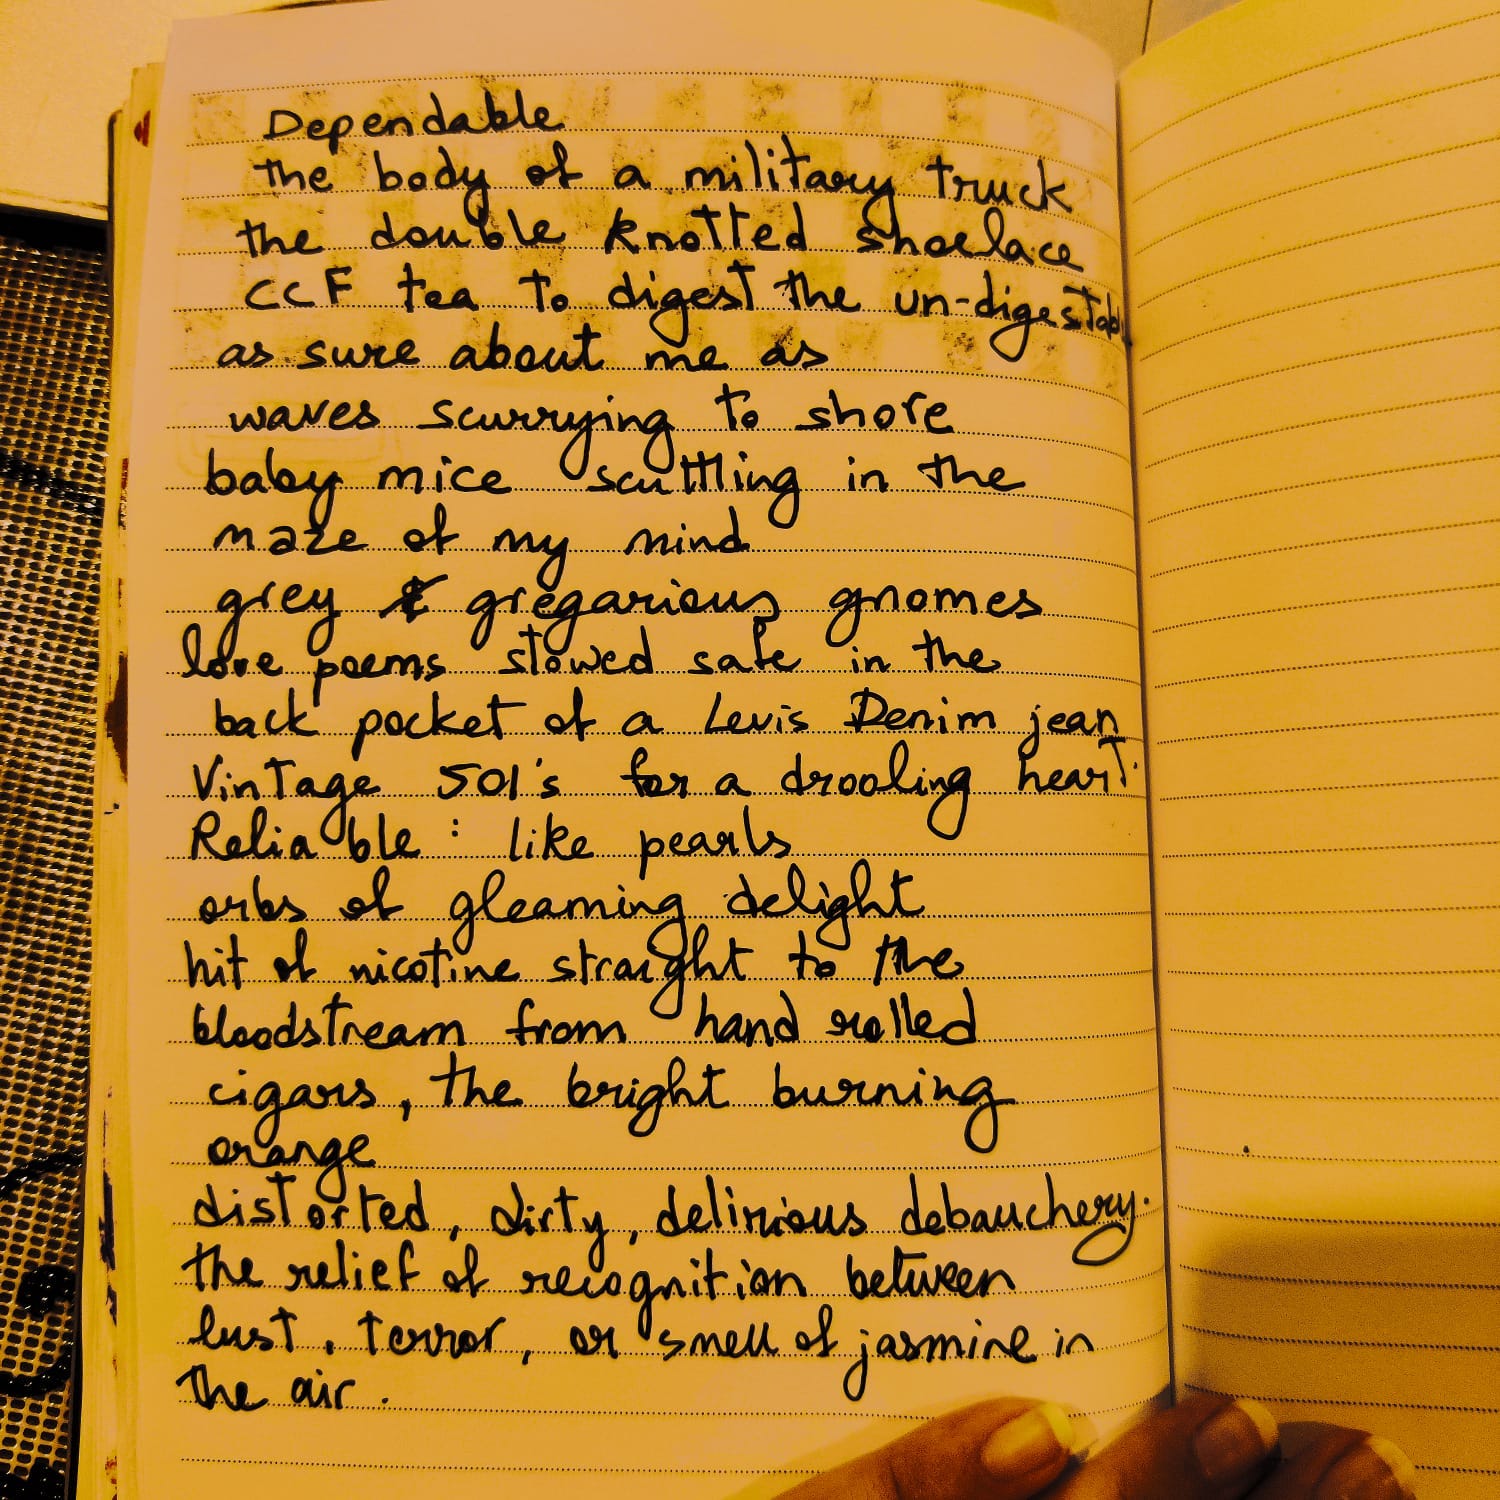 Dependable
the body of a military truck
the double knotted shoelace
CCF tea to digest the un-digestabl
as sure about me as
waves scurrying to shore
baby mice scuttling in the
maze of my mind
grey & gregarious gnomes
love poems stowed safe in the
back pocket of a Levis Denim jean
Vintage 501's for a drooling heart.
Reliable : like pearls
orbs of gleaming delight
hit of nicotine straight to the
bloodstream from hand rolled
cigars, the bright burning
orange
distorted, dirty, delirious debauchery.
the relief of recognition between
lust, terror, or smell of jasmine in
the air.